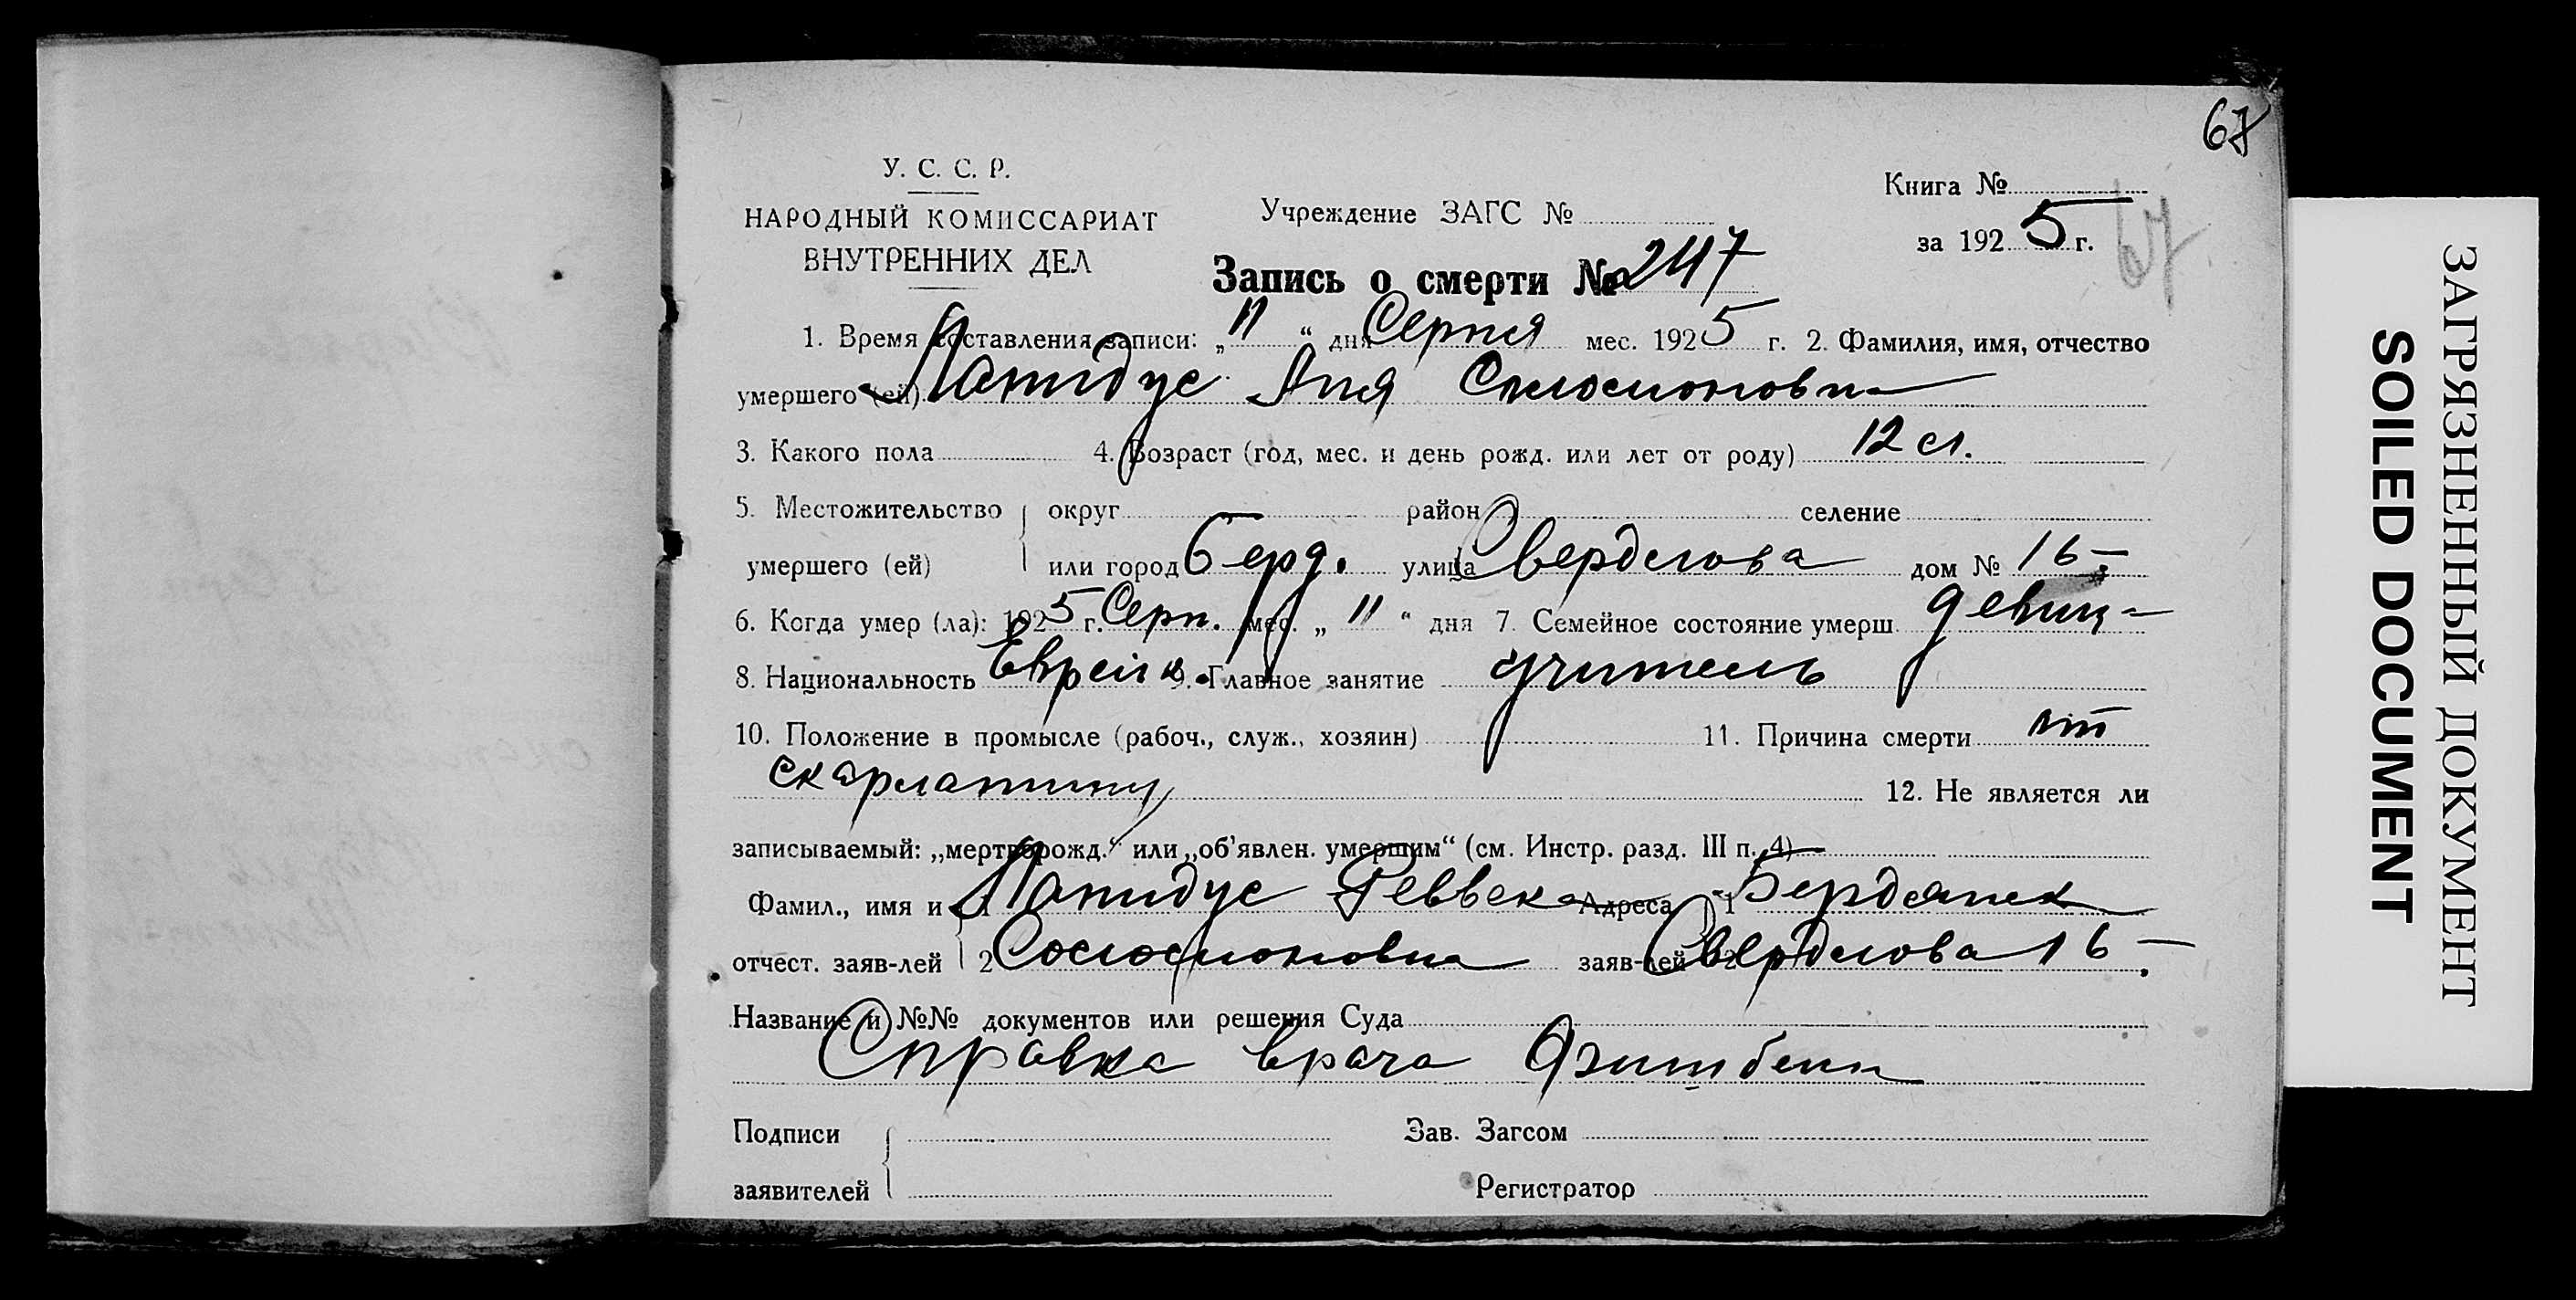 67
У. С. С. Р.
НАРОДНЫЙ КОМИССАРИАТ
ВНУТРЕННИХ ДЕЛ
Учреждение ЗАГС №
Книга №
за 1925 г.
67
Запись о смерти № 247
1. Время составления записи: „11“ дня Серпня мес. 1925 г. 2. Фамилия, имя, отчество
умершего (ей) Лапидус Аня Соломоновна
3. Какого пола 4. Возраст (год, мес. и день рожд. или лет от роду) 12 л.
5. Местожительство округ район селение
умершего (ей) или город Берд. улица Свердлова дом № 16
6. Когда умер (ла): 1925 г. Серп. мес. „11“ дня 7. Семейное состояние умерш. девиц
8. Национальность Еврейк. 9. Главное занятие учитель
10. Положение в промысле (рабоч., служ., хозяин) 11. Причина смерти от
скарлатины 12. Не является ли
записываемый: „мертворожд.“ или „об'явлен. умершим“ (см. Инстр. разд. III п. 4)
Фамил., имя и 1 Лапидус Реввека Адреса 1 Бердянск
отчест. заяв-лей 2 Соломоновна заяв-лей 2 Свердлова 16
Название и №№ документов или решения Суда
Справка врача
Подписи Зав. Загсом
заявителей Регистратор
ЗАГРЯЗНЕННЫЙ ДОКУМЕНТ
SOILED DOCUMENT